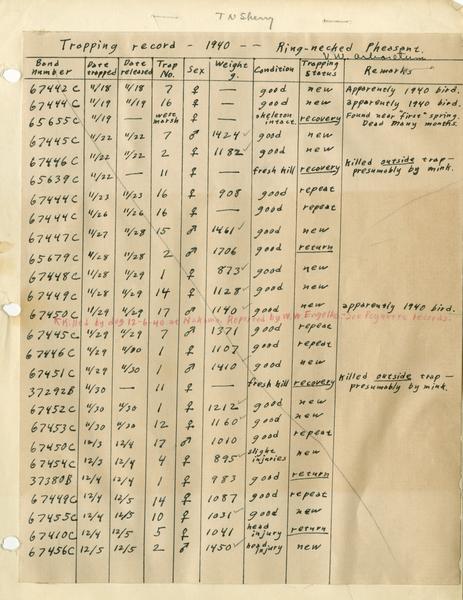 T N Sherry
Trapping record - 1940 -- Ring-necked Pheasant.
U.W. arboretum
Band number Date trapped Date released Trap No. Sex Weight g. Condition Trapping status Remarks
67442C 11/18 11/18 7 ♀ — good new Apparently 1940 bird.
67444C 11/19 11/19 16 ♀ — good new apparently 1940 bird.
65655C 11/19 — west marsh ♀ — skeleton intact recovery Found near "first" spring. Dead many months.
67445C 11/22 11/22 7 ♂ 1424 ✓ good new
67446C 11/22 11/22 2 ♀ 1182 ✓ good new
65639C 11/22 — 11 ♀ — fresh kill recovery Killed outside trap— presumably by mink.
67444C 11/23 11/23 16 ♀ 908 good repeat
67444C 11/26 11/26 16 ♀ — good repeat
67447C 11/27 11/28 15 ♂ 1461 ✓ good new
65679C 11/28 11/28 2 ♂ 1706 good return
67448C 11/28 11/29 1 ♀ 873 ✓ good new
67449C 11/28 11/29 14 ♀ 1128 ✓ good new
67450C 11/28 11/29 17 ♂ 1140 ✓ good new apparently 1940 bird.
Killed by dog 12-6-40 at Nakoma. Reported by W.W. Engelke. See Poynette records.
67445C 11/29 11/29 7 ♂ 1371 good repeat
67446C 11/29 11/30 1 ♀ 1107 good repeat
67451C 11/29 11/30 1 ♂ 1410 good new
37292B 11/30 — 11 ♀ — fresh kill recovery Killed outside trap— presumably by mink.
67452C 11/30 11/30 1 ♀ 1212 ✓ good new
67453C 11/30 11/30 12 ♀ 1160 ✓ good new
67450C 12/3 12/4 17 ♂ 1010 good repeat
67454C 12/3 12/4 4 ♀ 895 ✓ slight injuries new
37380B 12/4 12/4 1 ♀ 983 good return
67449C 12/4 12/5 14 ♀ 1087 good repeat
67455C 12/4 12/5 10 ♀ 1031 ✓ good new
67410C 12/4 12/5 5 ♀ 1041 head injury return
67456C 12/5 12/5 2 ♂ 1450 ✓ head injury new